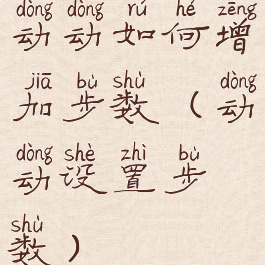 dòng dòng rú hé zēng
动动如何增
jiā bù shù dòng
加步数（动
dòng shè zhì bù
动设置步
shù
数）